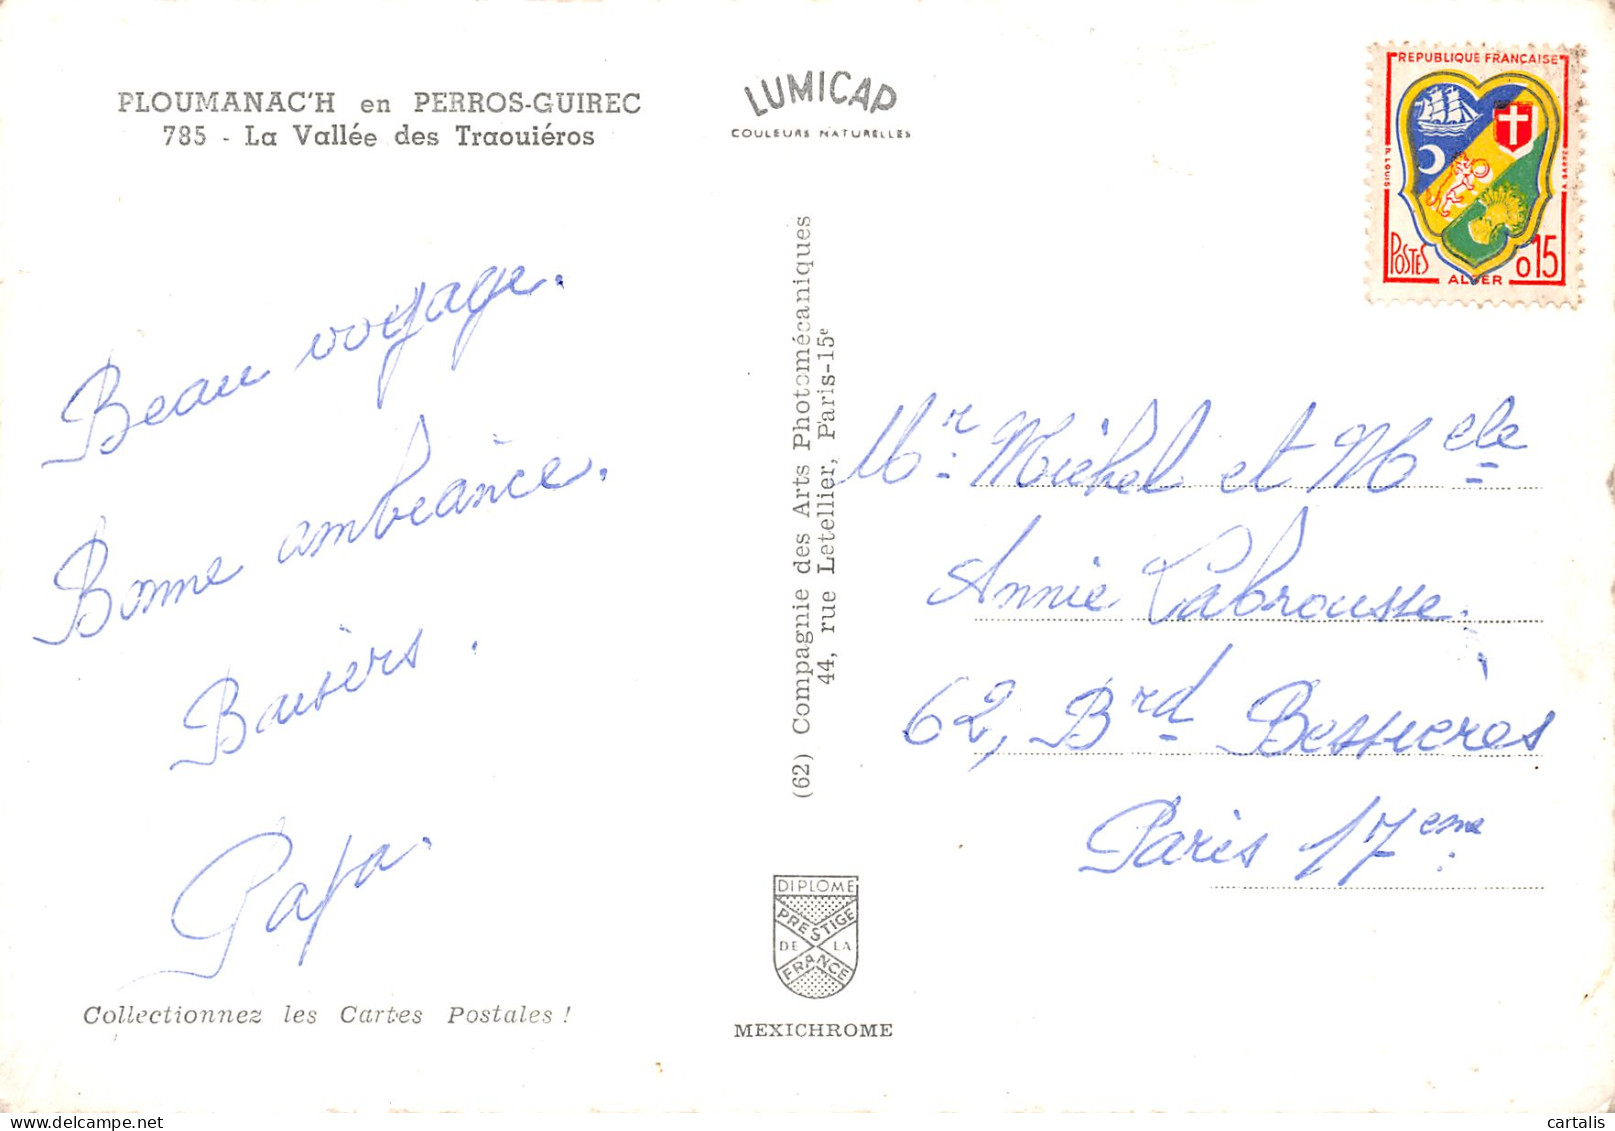 PLOUMANAC'H en PERROS-GUIREC
785 - La Vallée des Traouiéros
LUMICAP
COULEURS NATURELLES
REPUBLIQUE FRANÇAISE
POSTES
ALGER
0 15
Beau voyage.
Bonne ambeance.
Baisers.
Papa.
Collectionnez les Cartes Postales !
(62) Compagnie des Arts Photomécaniques
44, rue Letellier, Paris-15e
DIPLOME
PRESTIGE
DE LA
FRANCE
MEXICHROME
Mr Michel et Melle
Annie Labrousse.
62, Brd Bessières
Paris 17eme.
cartalis